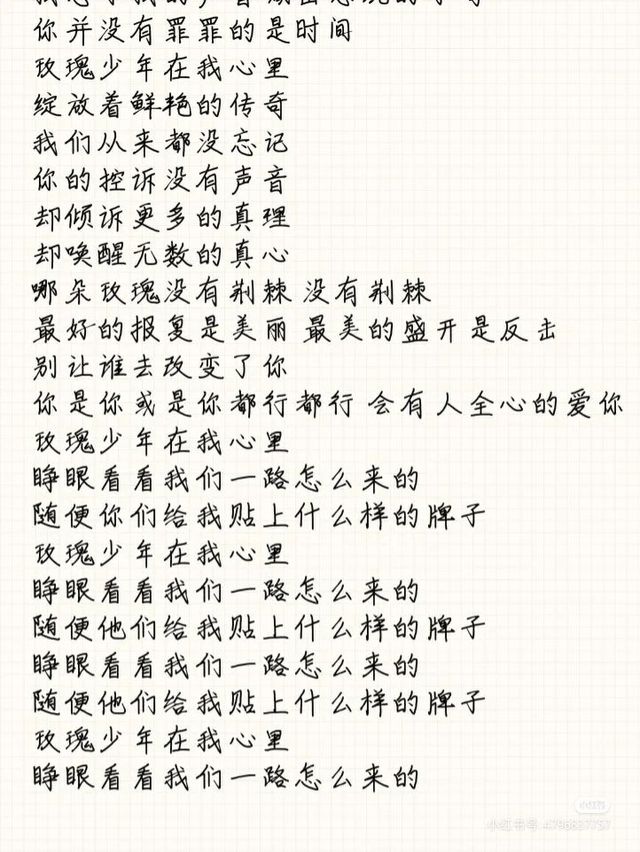 你并没有罪罪的是时间
玫瑰少年在我心里
绽放着鲜艳的传奇
我们从来都没忘记
你的控诉没有声音
却倾诉更多的真理
却唤醒无数的真心
哪朵玫瑰没有荆棘 没有荆棘
最好的报复是美丽 最美的盛开是反击
别让谁去改变了你
你是你或是你都行都行 会有人全心的爱你
玫瑰少年在我心里
睁眼看看我们一路怎么来的
随便你们给我贴上什么样的牌子
玫瑰少年在我心里
睁眼看看我们一路怎么来的
随便他们给我贴上什么样的牌子
睁眼看看我们一路怎么来的
随便他们给我贴上什么样的牌子
玫瑰少年在我心里
睁眼看看我们一路怎么来的
小红书